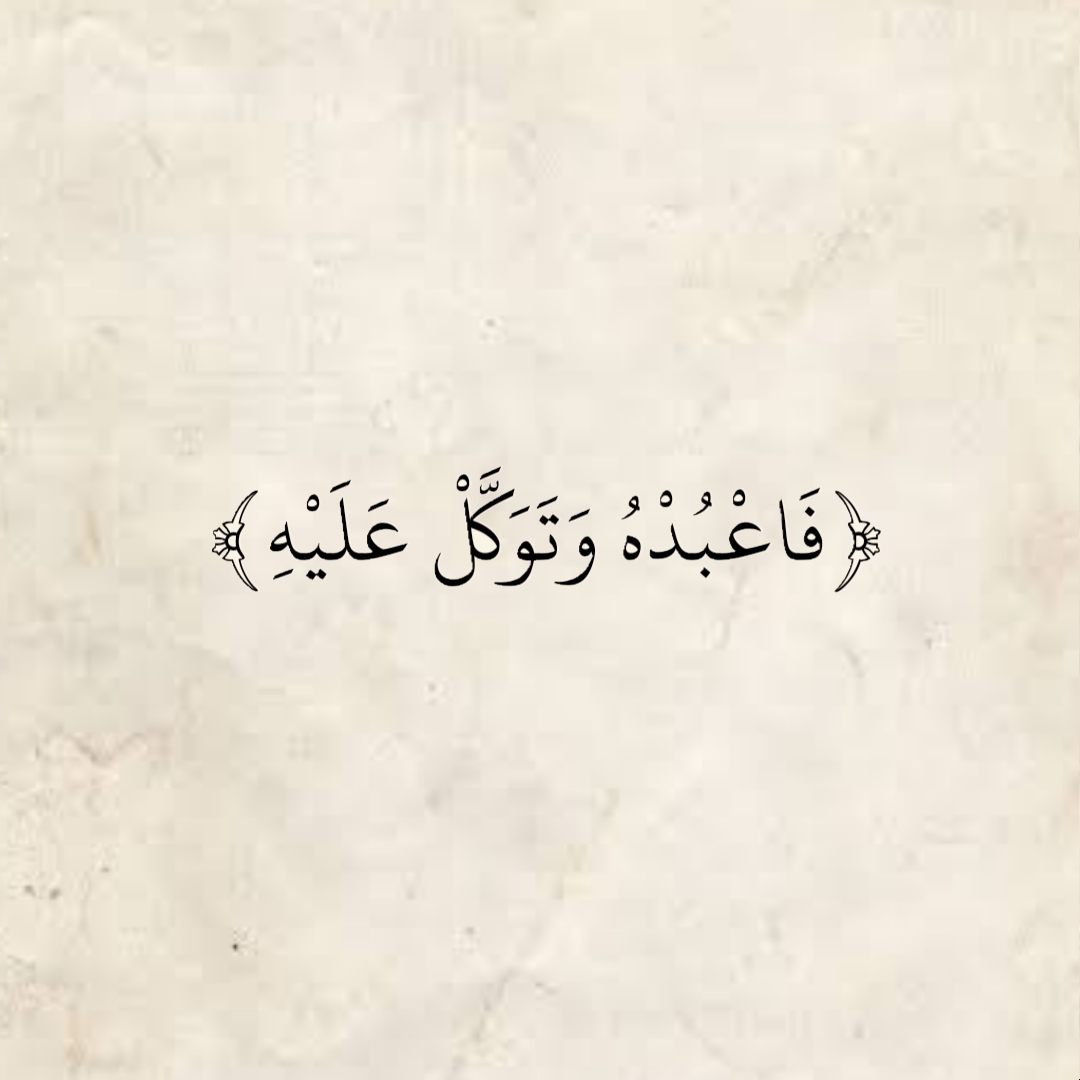 ﴿فَاعْبُدْهُ وَتَوَكَّلْ عَلَيْهِ﴾